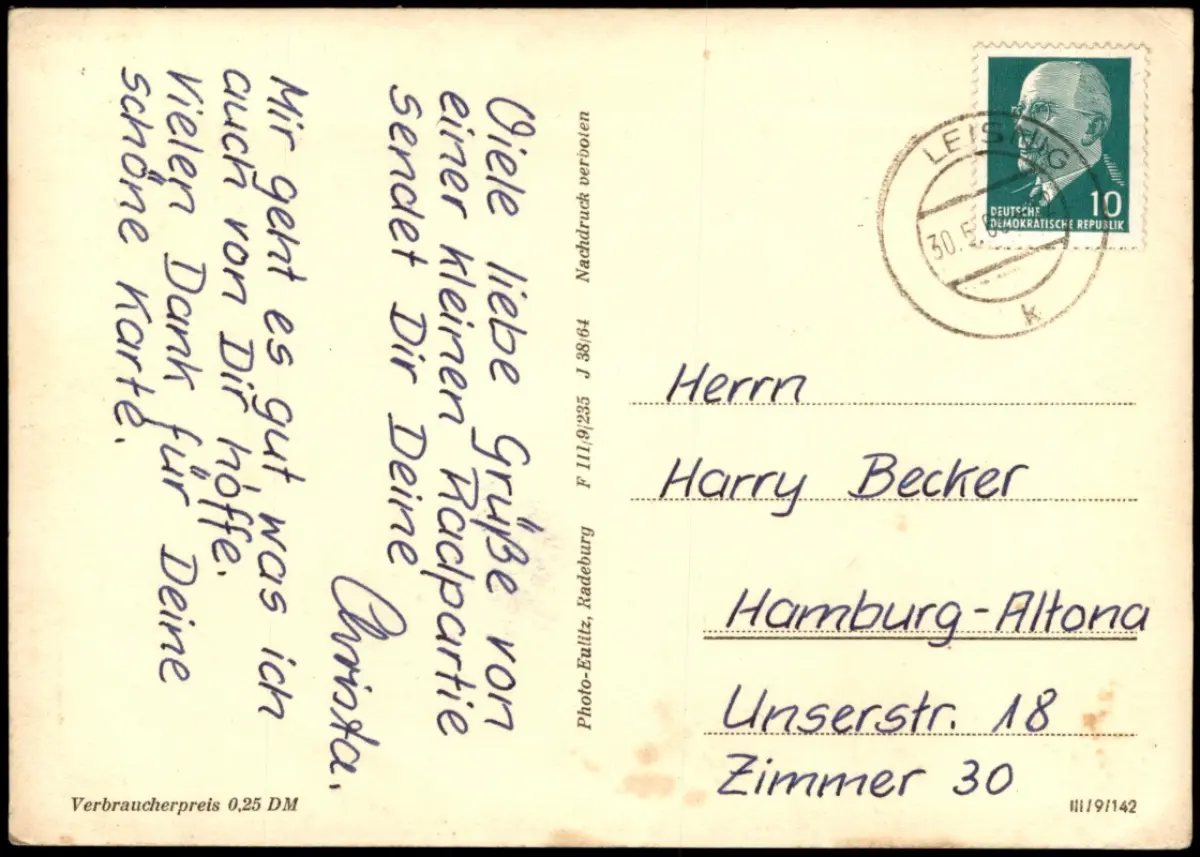 Viele liebe Grüße von
einer kleinen Radpartie
sendet Dir Deine
Christa.
Mir geht es gut was ich
auch von Dir hoffe.
Vielen Dank für Deine
schöne Karte.
Verbraucherpreis 0,25 DM
Photo-Eulitz, Radeburg F III/9/235 J 38/64 Nachdruck verboten
10
DEUTSCHE
DEMOKRATISCHE REPUBLIK
LEISNIG
30.5.
k
Herrn
Harry Becker
Hamburg-Altona
Unserstr. 18
Zimmer 30
III/9/142